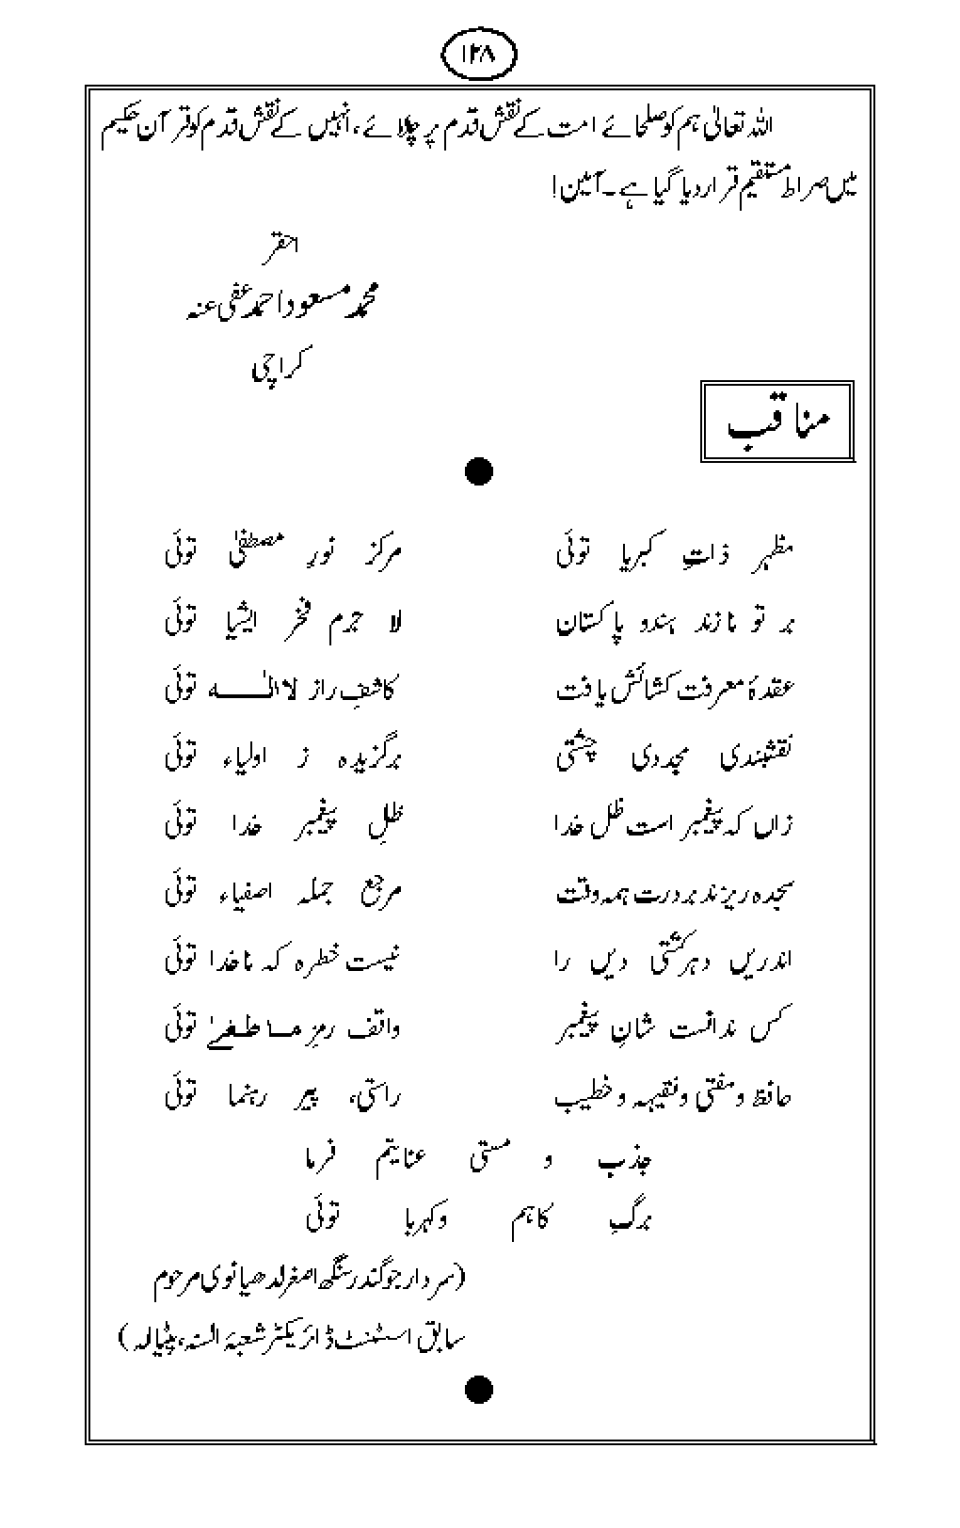 ۱۲۸
اللہ تعالیٰ ہم کو صلحائے امت کے نقش قدم پر چلائے، انہیں کے نقش قدم کو قرآن حکیم
میں صراط مستقیم قرار دیا گیا ہے۔ آمین!
احقر
محمد مسعود احمد عفی عنہ
کراچی
مناقب
مظہر ذاتِ کبریا توئی مرکز نورِ مصطفیٰ توئی
بر تو نازند ہندو پاکستان لا جرم فخر ایشیا توئی
عقدۂ معرفت کشائش یافت کاشفِ راز لا الٰہ توئی
نقشبندی مجددی چشتی برگزیدہ ز اولیاء توئی
زاں کہ پیغمبر است ظل خدا ظلِ پیغمبر خدا توئی
سجدہ ریزند بر درت ہمہ وقت مرجع جملہ اصفیاء توئی
اندریں دہر کشتی دیں را نیست خطرہ کہ ناخدا توئی
کس ندانست شانِ پیغمبر واقف رمزِ ماطغیٰ توئی
حافظ و مفتی و فقیہہ و خطیب راستی، پیر رہنما توئی
جذب و مستی عنایتم فرما
برگِ کاہم و کہربا توئی
(سردار جوگندر سنگھ اصغر لدھیانوی مرحوم
سابق اسٹنٹ ڈائریکٹر شعبۂ السنہ، پٹیالہ)